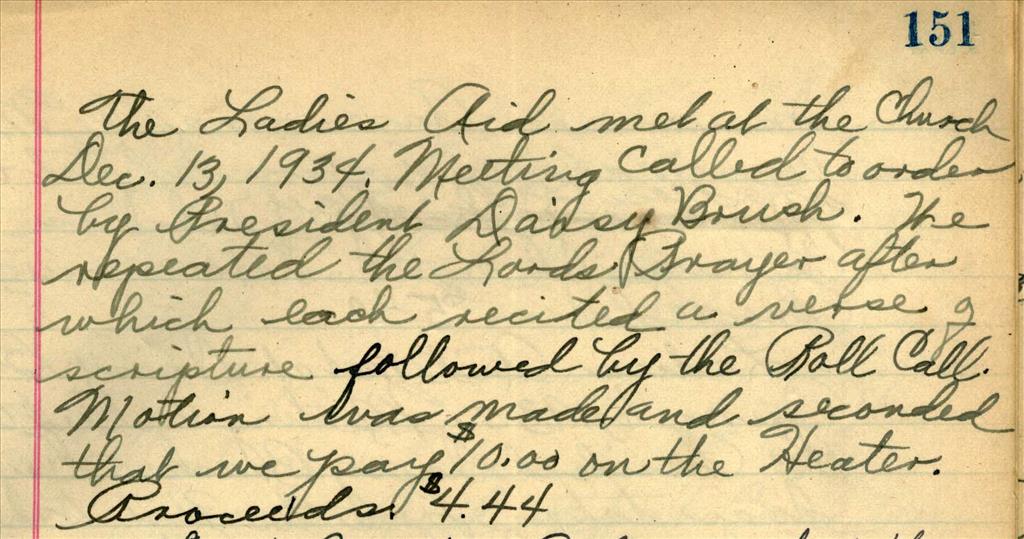 151
The Ladies Aid met at the Church
Dec. 13, 1934. Meeting called to order
by President Daisy Brush. We
repeated the Lords Prayer after
which each recited a verse of
scripture followed by the Roll Call.
Motion was made and seconded
that we pay $10.00 on the Heater.
Proceeds $4.44